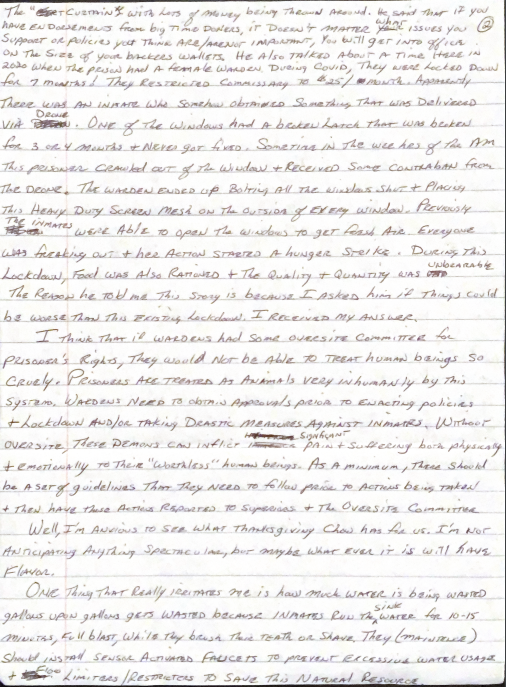 The "GET CURTAIN" WITH LOTS OF MONEY BEING THROWN AROUND. HE SAID THAT IF YOU
②
HAVE ENDORSEMENTS FROM BIG TIME DONERS, IT DOESN'T MATTER WHAT ISSUES YOU
SUPPORT OR POLICIES YOU THINK ARE/ARENOT IMPORTANT, YOU WILL GET INTO OFFICE
ON THE SIZE OF YOUR BACKERS WALLETS. HE ALSO TALKED ABOUT A TIME HERE IN
2020 WHEN THE PRISON HAD A FEMALE WARDEN. DURING COVID, THEY WERE LOCKED DOWN
FOR 7 MONTHS! THEY RESTRICTED COMMISSARY TO $25/MONTH. APPARENTLY
THERE WAS AN INMATE WHO SOMEHOW OBTAINED SOMETHING THAT WAS DELIVERED
VIA DRONE. ONE OF THE WINDOWS HAD A BROKEN LATCH THAT WAS BROKEN
FOR 3 OR 4 MONTHS + NEVER GOT FIXED. SOMETIME IN THE WEE HRS OF THE AM
THIS PRISONER CRAWLED OUT OF THE WINDOW + RECEIVED SOME CONTRABAN FROM
THE DRONE. THE WARDEN ENDED UP BOLTING ALL THE WINDOWS SHUT + PLACING
THIS HEAVY DUTY SCREEN MESH ON THE OUTSIDE OF EVERY WINDOW. PREVIOUSLY
THE INMATES WERE ABLE TO OPEN THE WINDOWS TO GET FRESH AIR. EVERYONE
WAS FREAKING OUT + HER ACTION STARTED A HUNGER STRIKE. DURING THIS
LOCKDOWN, FOOD WAS ALSO RATIONED + THE QUALITY + QUANTITY WAS UNBEARABLE
THE REASON HE TOLD ME THIS STORY IS BECAUSE I ASKED HIM IF THINGS COULD
BE WORSE THAN THIS EXISTING LOCKDOWN. I RECEIVED MY ANSWER.
I THINK THAT IF WARDENS HAD SOME OVERSITE COMMITTEE FOR
PRISONER'S RIGHTS, THEY WOULD NOT BE ABLE TO TREAT HUMAN BEINGS SO
CRUELY. PRISONERS ARE TREATED AS ANAMALS VERY INHUMANLY BY THIS
SYSTEM. WARDENS NEED TO OBTAIN APPROVALS PRIOR TO ENACTING POLICIES
+ LOCKDOWN AND/OR TAKING DRASTIC MEASURES AGAINST INMATES. WITHOUT
OVERSITE, THESE DEMONS CAN INFLICT SIGNIFICANT PAIN + SUFFERING BOTH PHYSICALLY
+ EMOTIONALLY TO THEIR "WORTHLESS" HUMAN BEINGS. AS A MINIMUM, THERE SHOULD
BE A SET OF GUIDELINES THAT THEY NEED TO FOLLOW PRIOR TO ACTIONS BEING TAKEN
+ THEN HAVE THOSE ACTIONS REPORTED TO SUPERIORS + THE OVERSITE COMMITTEE
WELL, I'M ANXIOUS TO SEE WHAT THANKSGIVING CHOW HAS FOR US. I'M NOT
ANTICIPATING ANYTHING SPECTACULAR, BUT MAYBE WHAT EVER IT IS WILL HAVE
FLAVOR.
ONE THING THAT REALLY IRRITATES ME IS HOW MUCH WATER IS BEING WASTED
GALLONS UPON GALLONS GETS WASTED BECAUSE INMATES RUN THE SINK WATER FOR 10-15
MINUTES, FULL BLAST, WHILE THEY BRUSH THEIR TEATH OR SHAVE. THEY (MAINTENCE)
SHOULD INSTALL SENSOR ACTIVATED FAUCETS TO PREVENT EXCESSIVE WATER USAGE
+ FLOW LIMITERS/RESTRICTERS TO SAVE THIS NATURAL RESOURCE.